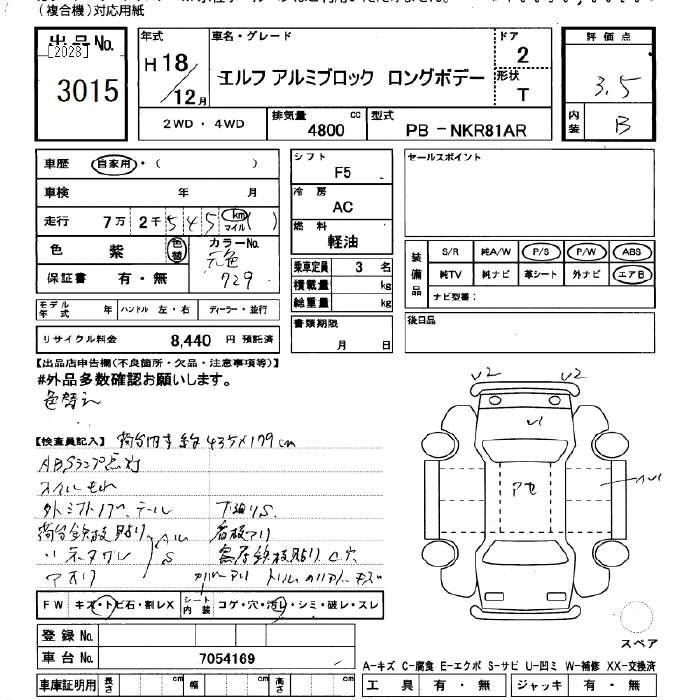 (複合機)対応用紙
出品No.
[2028]
3015
年式
H18/12月
車名・グレード
エルフ アルミブロック ロングボデー
ドア
2
形状
T
評価点
3.5
内装
B
2WD・4WD
排気量
4800 cc
型式
PB-NKR81AR
車歴 自家用・( )
車検 年 月
走行 7万 2千 5 4 5 km マイル ( )
色 紫 色替
カラーNo.
元色
729
保証書 有・無
モデル年式 年 ハンドル 左・右 ディーラー・並行
リサイクル料金 8,440 円 預託済
シフト
F5
冷房
AC
燃料
軽油
乗車定員 3 名
積載量 kg
総重量 kg
書類期限
月 日
セールスポイント
装備品
S/R 純A/W P/S P/W ABS
純TV 純ナビ 革シート 外ナビ エアB
ナビ型番:
後日品
【出品店申告欄(不良箇所・欠品・注意事項等)】
#外品多数確認お願いします。
色替え
【検査員記入】 荷台内寸 約435×179cm
ABSランプ点灯
下廻りS
看板アリ
カバーアリ
V2 V2
V1
アセ
FW キズ・トビ石・割レX
シート内装 コゲ・穴・汚レ・シミ・破レ・スレ
登録No.
車台No. 7054169
車庫証明用 長さ cm 幅 cm 高さ cm
スペア
A-キズ C-腐食 E-エクボ S-サビ U-凹ミ W-補修 XX-交換済
工具 有・無 ジャッキ 有・無